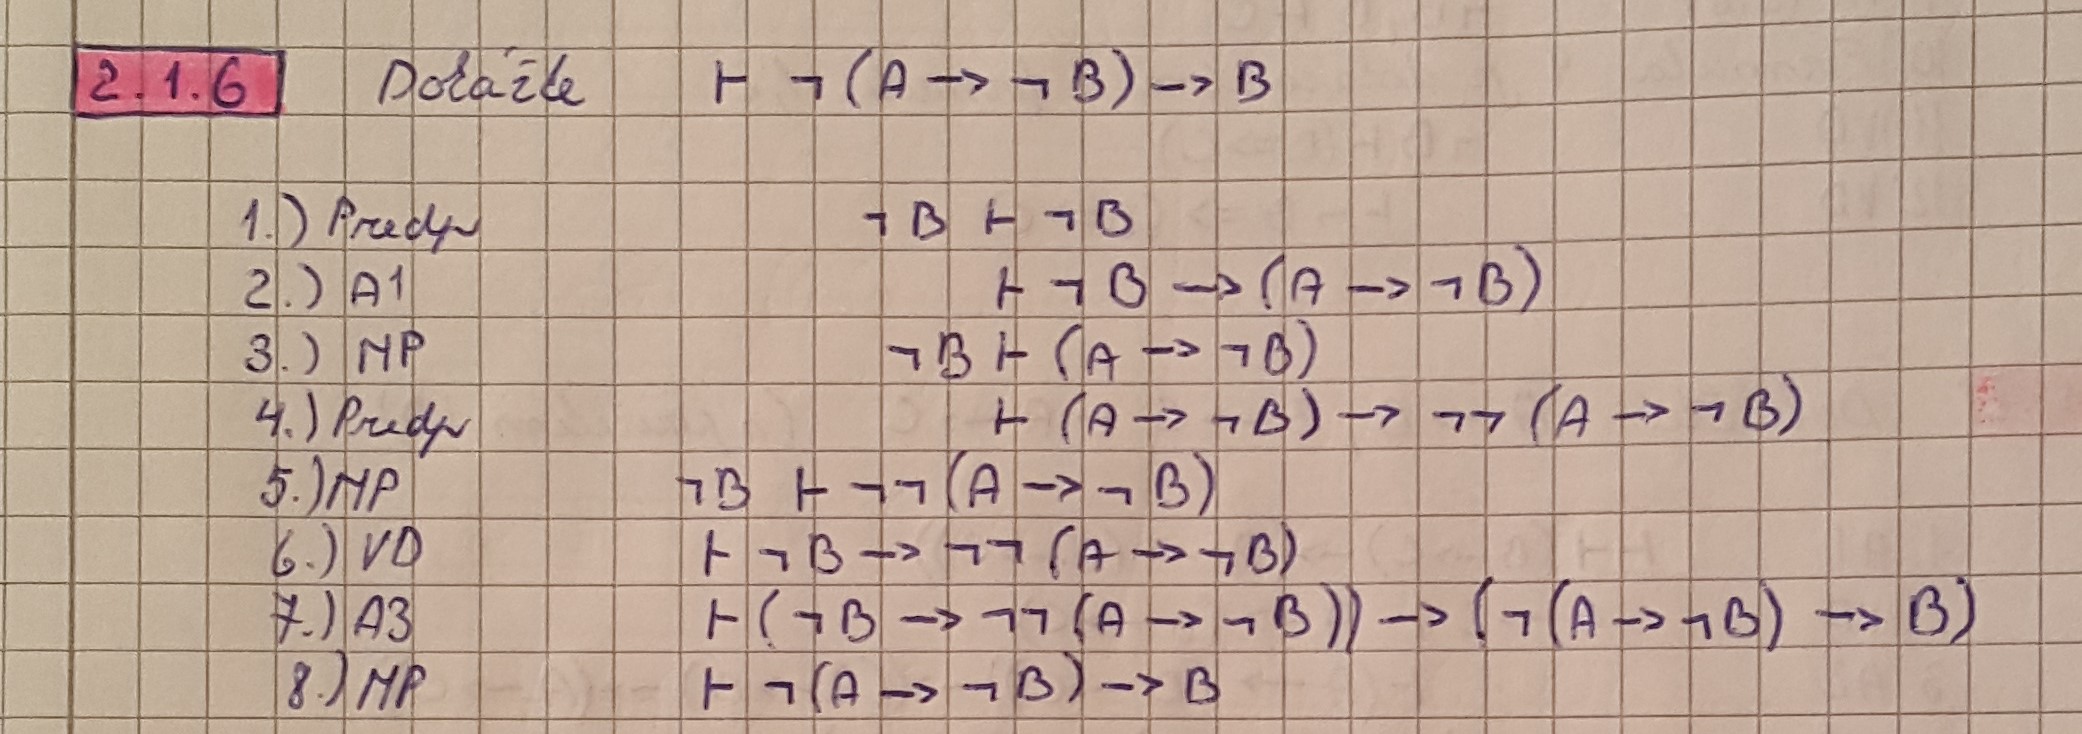 2.1.6 Dokážte ⊢ ¬(A → ¬B) → B
1.) Predp ¬B ⊢ ¬B
2.) A1 ⊢ ¬B → (A → ¬B)
3.) MP ¬B ⊢ (A → ¬B)
4.) Predp ⊢ (A → ¬B) → ¬¬(A → ¬B)
5.) MP ¬B ⊢ ¬¬(A → ¬B)
6.) VD ⊢ ¬B → ¬¬(A → ¬B)
7.) A3 ⊢ (¬B → ¬¬(A → ¬B)) → (¬(A → ¬B) → B)
8.) MP ⊢ ¬(A → ¬B) → B